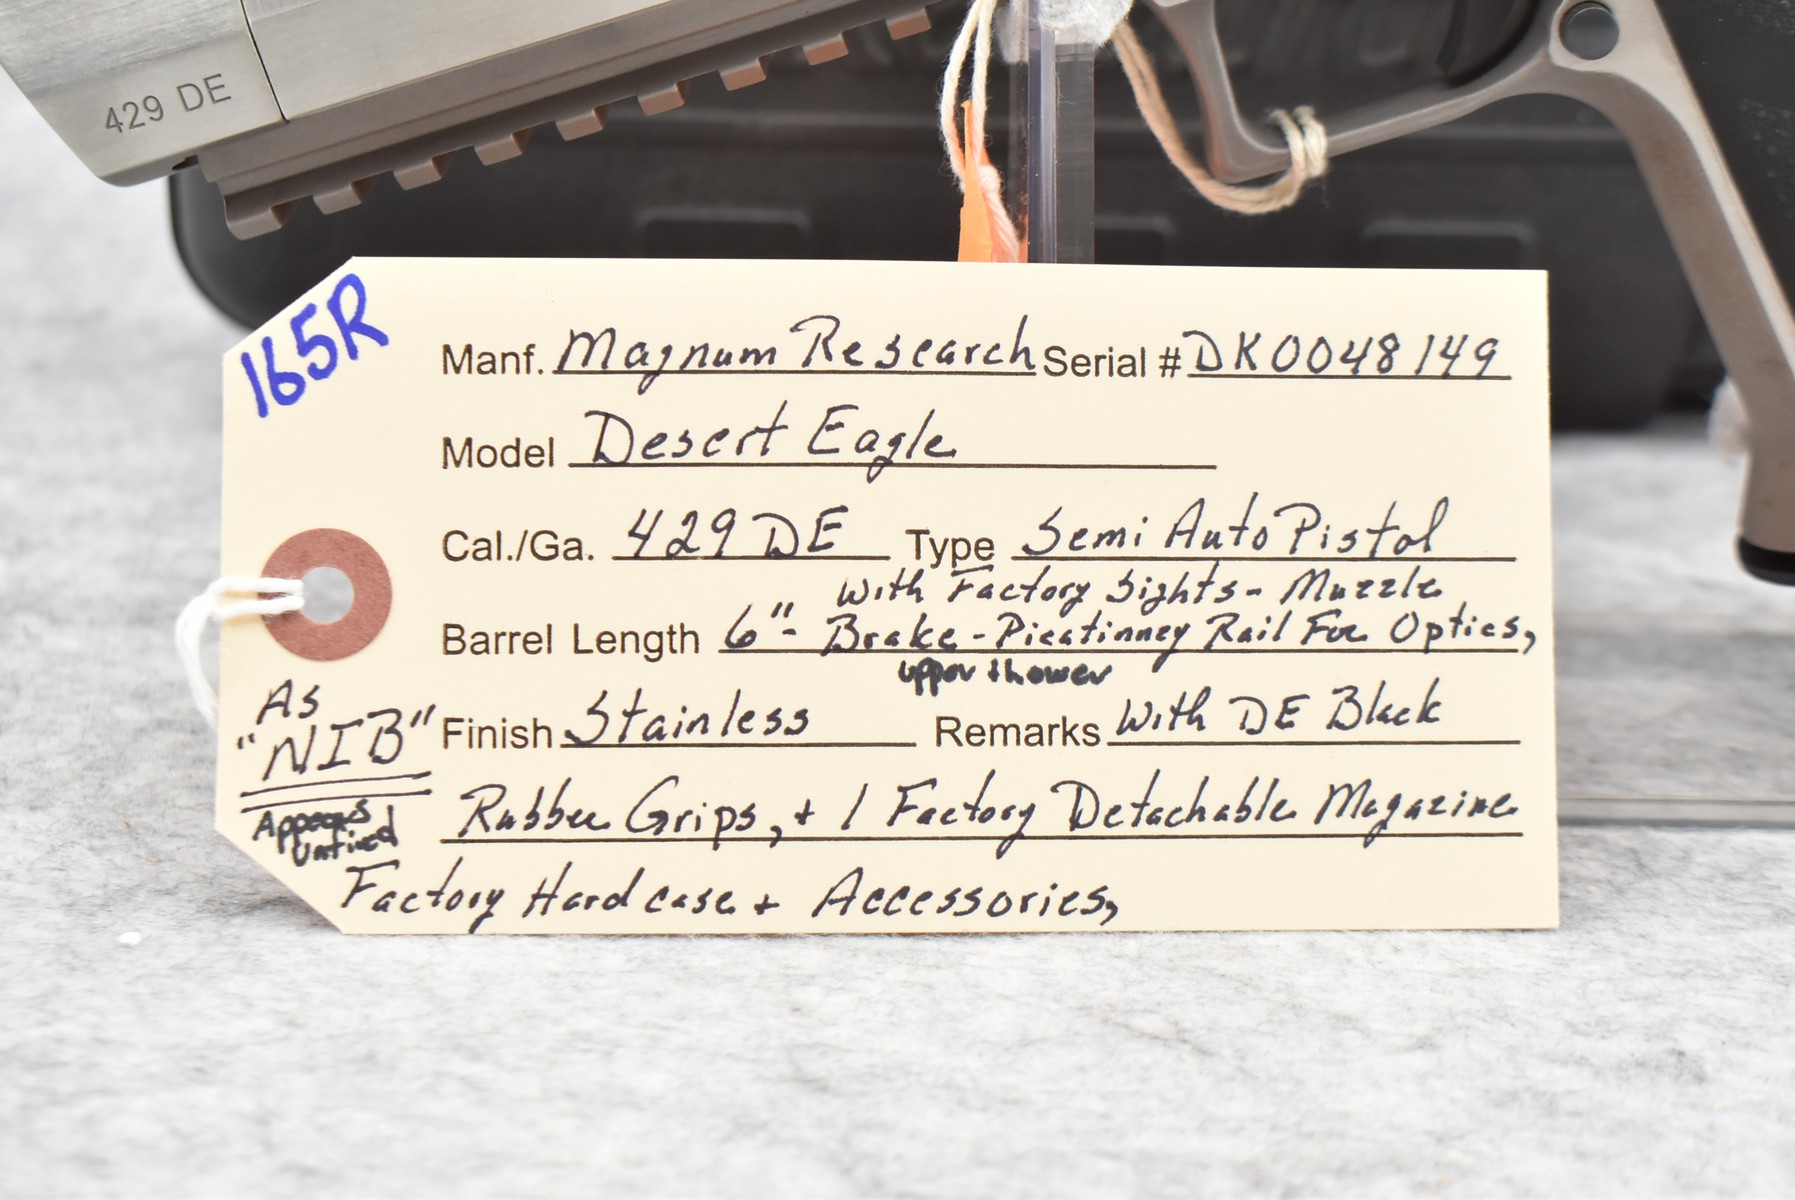 429 DE
165R
Manf. Magnum Research Serial # DK0048149
Model Desert Eagle
Cal./Ga. 429 DE Type Semi Auto Pistol
With Factory Sights - Muzzle
Barrel Length 6" - Brake - Picatinney Rail For Optics,
upper + lower
As
"NIB"
Finish Stainless Remarks With DE Black
Appears
Unfired
Rubber Grips, + 1 Factory Detachable Magazine
Factory Hard case + Accessories,